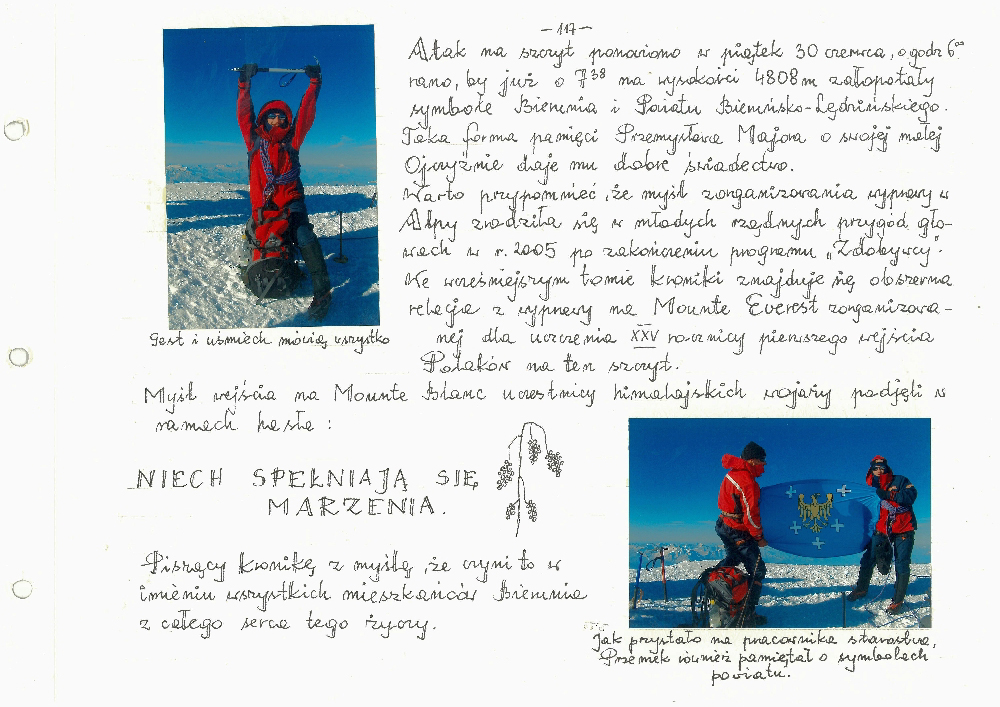 - 117 -
Atak na szczyt ponowiono w piątek 30 czerwca, o godz 6⁰⁰
rano, by już o 7³⁸ na wysokości 4808 m załopotały
symbole Bierunia i Powiatu Bieruńsko-Lędzińskiego.
Taka forma pamięci Przemysława Majora o swojej małej
Ojczyźnie daje mu dobre świadectwo.
Warto przypomnieć, że myśl zorganizowania wyprawy w
Alpy zrodziła się w młodych żądnych przygód gło-
wach w r. 2005 po zakończeniu programu „Zdobywcy".
We wcześniejszym tomie kroniki znajduje się obszerna
relacja z wyprawy na Mounte Everest zorganizowa-
nej dla uczczenia XXV rocznicy pierwszego wejścia
Polaków na ten szczyt.
Gest i uśmiech mówią wszystko
Myśl wejścia na Mounte Blanc uczestnicy himalajskich wojaży podjęli w
ramach hasła :
NIECH SPEŁNIAJĄ SIĘ
MARZENIA.
Piszący kronikę z myślą, że czyni to w
imieniu wszystkich mieszkańców Bierunia
z całego serca tego życzy.
Jak przystało na pracownika starostwa,
Przemek również pamiętał o symbolach
powiatu.